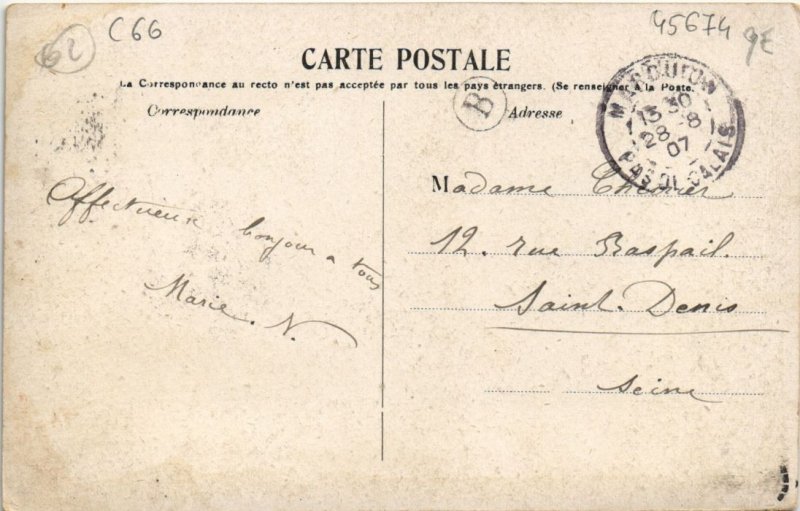 62
C66
45674
9E
CARTE POSTALE
La Correspondance au recto n'est pas acceptée par tous les pays étrangers. (Se renseigner à la Poste.
Correspondance
B
Adresse
MARQUION
13 30
28 - 8
07
PAS DE CALAIS
Affectueux bonjour a tous
Marie. N.
Madame
12. rue Raspail.
Saint. Denis
Seine